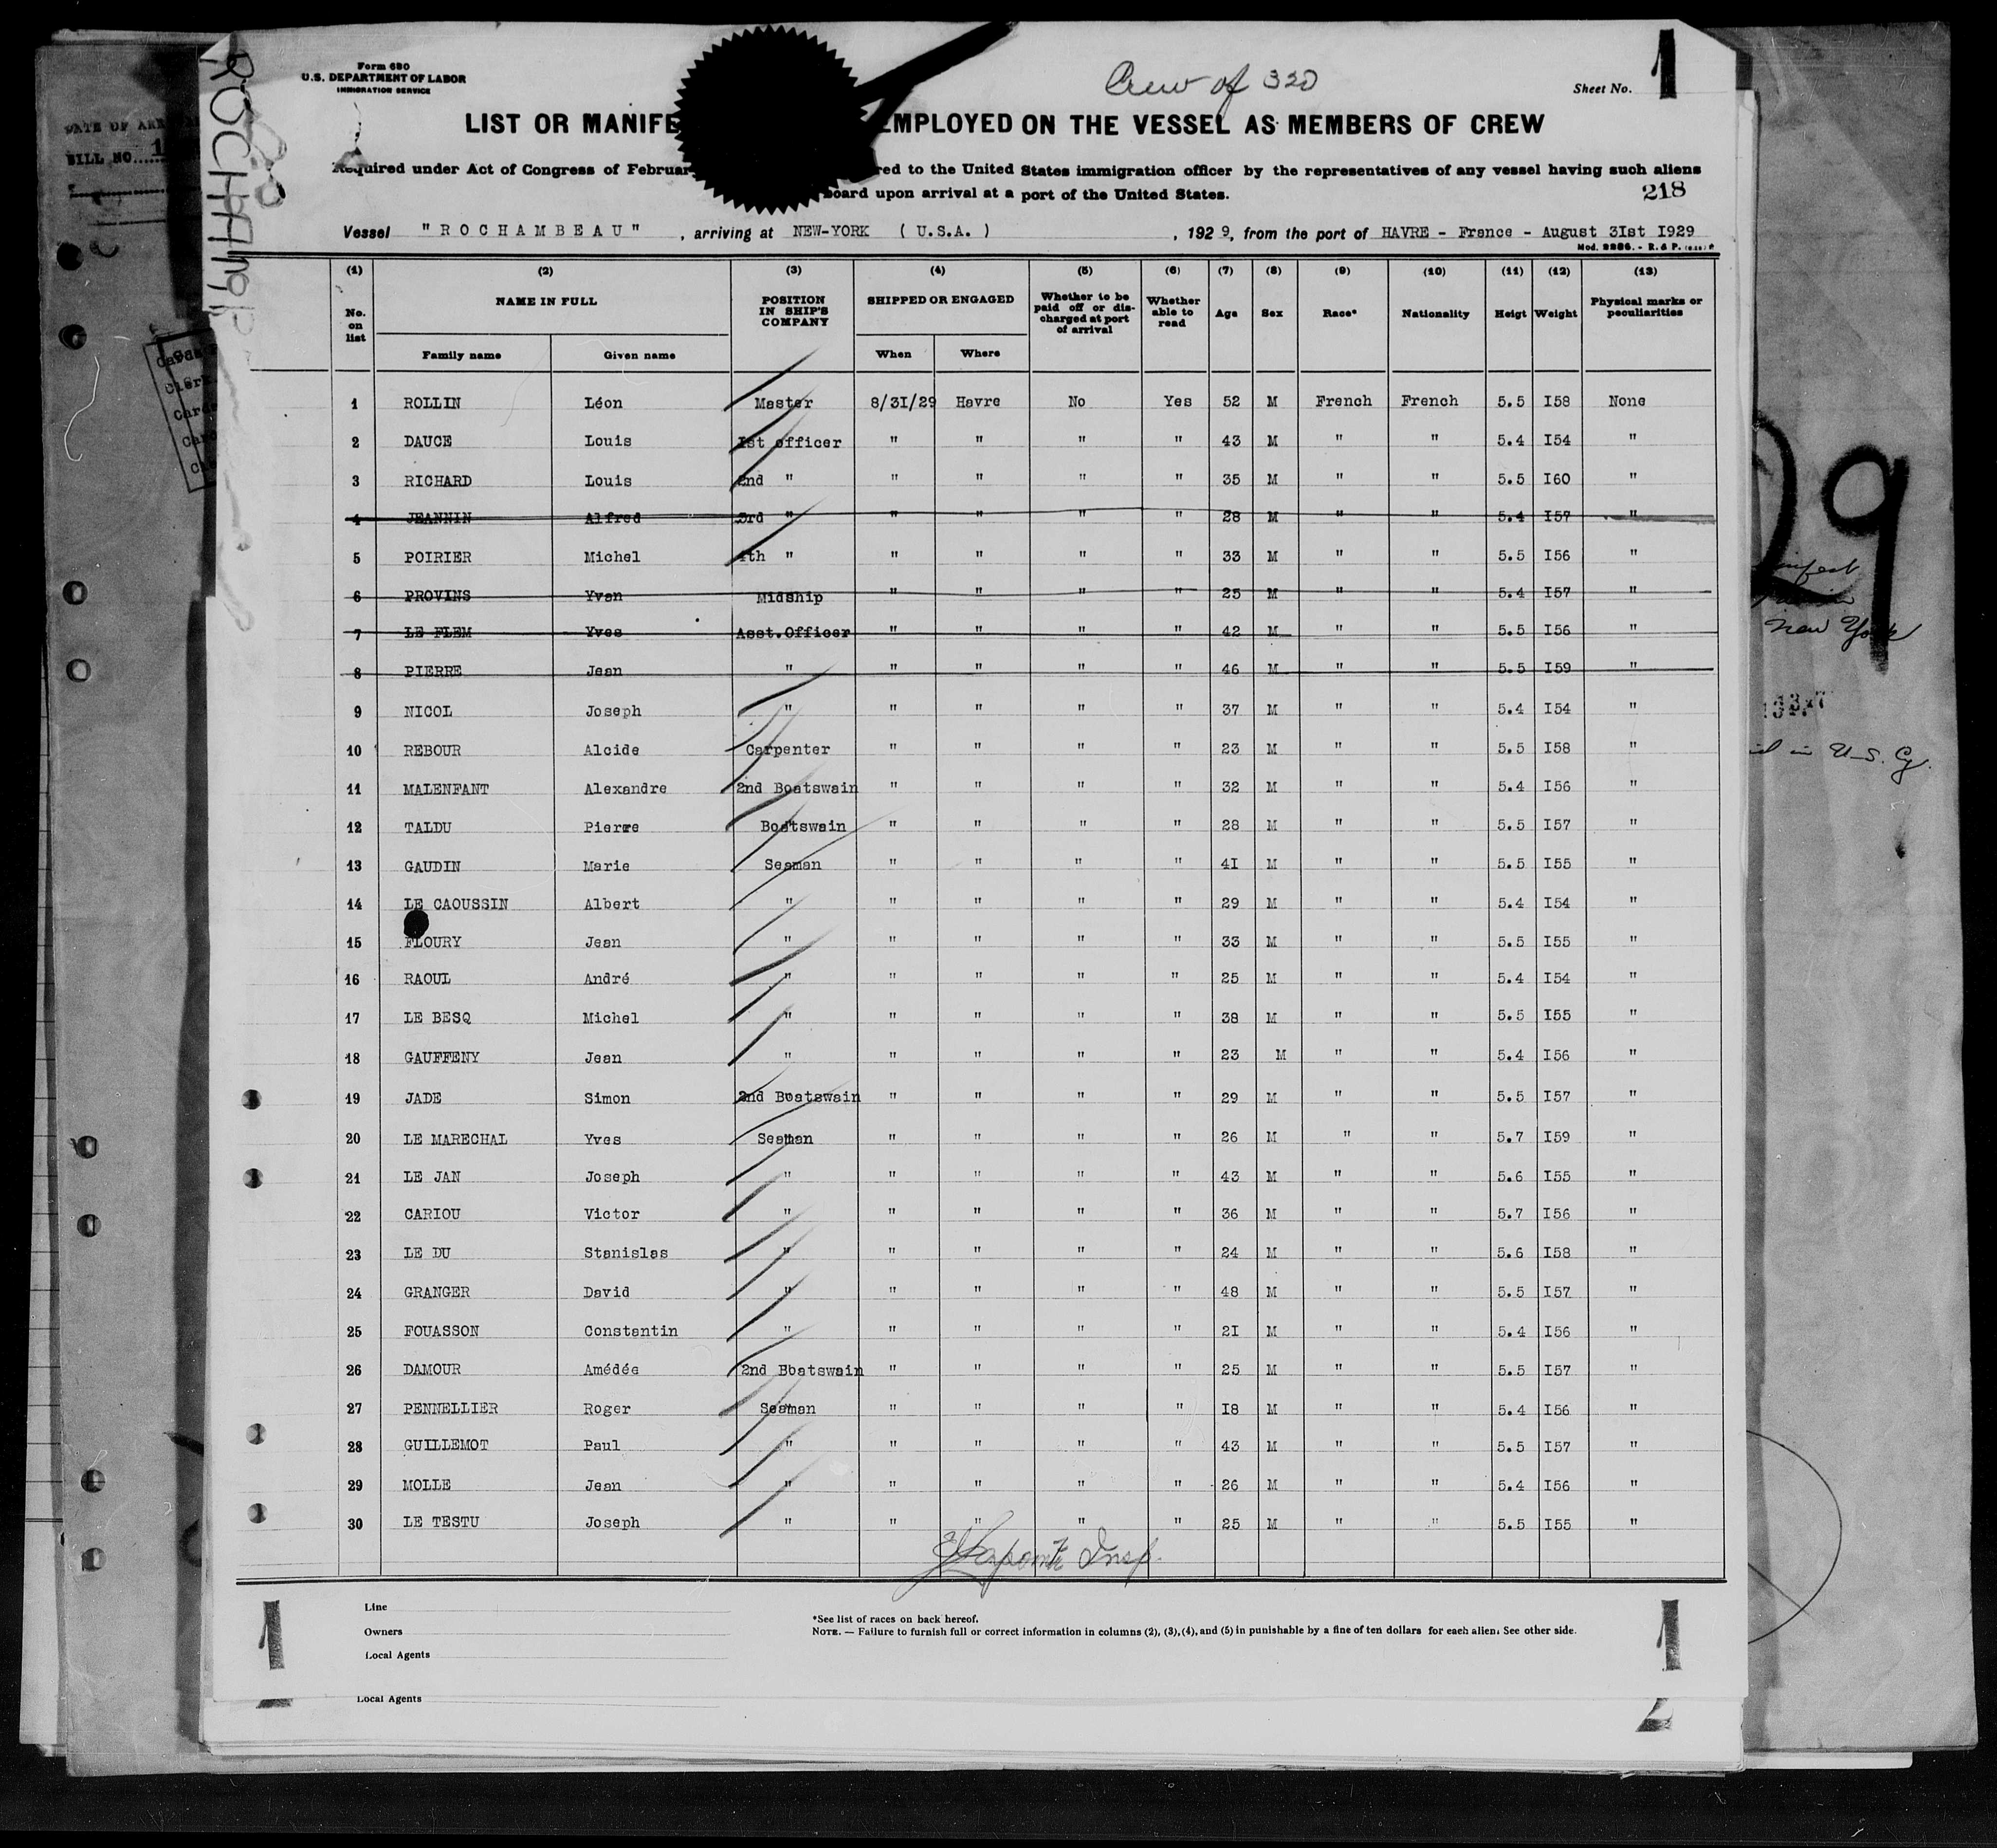 Form 680
U.S. DEPARTMENT OF LABOR
IMMIGRATION SERVICE
Crew of 320
Sheet No. 1
LIST OR MANIFE EMPLOYED ON THE VESSEL AS MEMBERS OF CREW
Required under Act of Congress of Februar red to the United States immigration officer by the representatives of any vessel having such aliens
board upon arrival at a port of the United States.
218
Vessel "ROCHAMBEAU", arriving at NEW-YORK (U.S.A.), 1929, from the port of HAVRE - France - August 3Ist I929
Mod. 2286. - R. & P.
(1) (2) (3) (4) (5) (6) (7) (8) (9) (10) (11) (12) (13)
No. on list NAME IN FULL POSITION IN SHIP'S COMPANY SHIPPED OR ENGAGED Whether to be paid off or discharged at port of arrival Whether able to read Age Sex Race* Nationality Heigt Weight Physical marks or peculiarities
Family name Given name When Where
1 ROLLIN Léon Master 8/3I/29 Havre No Yes 52 M French French 5.5 I58 None
2 DAUCE Louis Ist officer " " " " 43 M " " 5.4 I54 "
3 RICHARD Louis 2nd " " " " " 35 M " " 5.5 I60 "
4 JEANNIN Alfred 3rd " " " " " 28 M " " 5.4 I57 "
5 POIRIER Michel 4th " " " " " 33 M " " 5.5 I56 "
6 PROVINS Yvan Midship " " " " 25 M " " 5.4 I57 "
7 LE FLEM Yves Asst.Officer " " " " 42 M " " 5.5 I56 "
8 PIERRE Jean " " " " " 46 M " " 5.5 I59 "
9 NICOL Joseph " " " " " 37 M " " 5.4 I54 "
10 REBOUR Alcide Carpenter " " " " 23 M " " 5.5 I58 "
11 MALENFANT Alexandre 2nd Boatswain " " " " 32 M " " 5.4 I56 "
12 TALDU Pierre Boatswain " " " " 28 M " " 5.5 I57 "
13 GAUDIN Marie Seaman " " " " 4I M " " 5.5 I55 "
14 LE CAOUSSIN Albert " " " " " 29 M " " 5.4 I54 "
15 FLOURY Jean " " " " " 33 M " " 5.5 I55 "
16 RAOUL André " " " " " 25 M " " 5.4 I54 "
17 LE BESQ Michel " " " " " 38 M " " 5.5 I55 "
18 GAUFFENY Jean " " " " " 23 M " " 5.4 I56 "
19 JADE Simon 2nd Boatswain " " " " 29 M " " 5.5 I57 "
20 LE MARECHAL Yves Seaman " " " " 26 M " " 5.7 I59 "
21 LE JAN Joseph " " " " " 43 M " " 5.6 I55 "
22 CARIOU Victor " " " " " 36 M " " 5.7 I56 "
23 LE DU Stanislas " " " " " 24 M " " 5.6 I58 "
24 GRANGER David " " " " " 48 M " " 5.5 I57 "
25 FOUASSON Constantin " " " " " 2I M " " 5.4 I56 "
26 DAMOUR Amédée 2nd Boatswain " " " " 25 M " " 5.5 I57 "
27 PENNELLIER Roger Seaman " " " " I8 M " " 5.4 I56 "
28 GUILLEMOT Paul " " " " " 43 M " " 5.5 I57 "
29 MOLLE Jean " " " " " 26 M " " 5.4 I56 "
30 LE TESTU Joseph " " " " " 25 M " " 5.5 I55 "
Insp.
Line
Owners
Local Agents
*See list of races on back hereof.
NOTE. — Failure to furnish full or correct information in columns (2), (3), (4), and (5) in punishable by a fine of ten dollars for each alien. See other side.
1
1
Local Agents
2
BILL NO. 1
New York
in U.S. Cy.